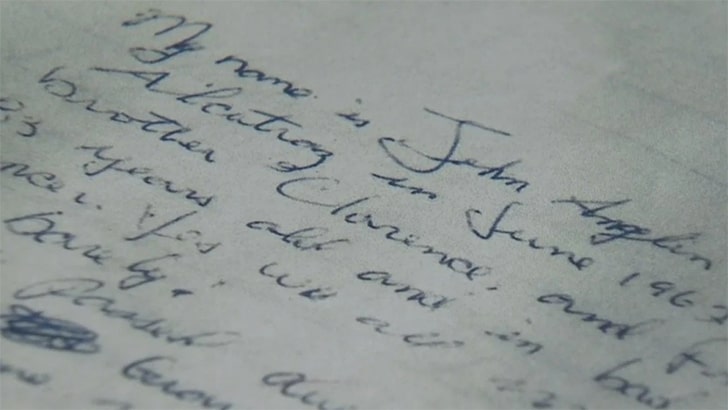 My name is John Anglin
Alcatraz in June 1962
brother Clarence, and
83 years old and in bad
Yes we all
barely!
passed